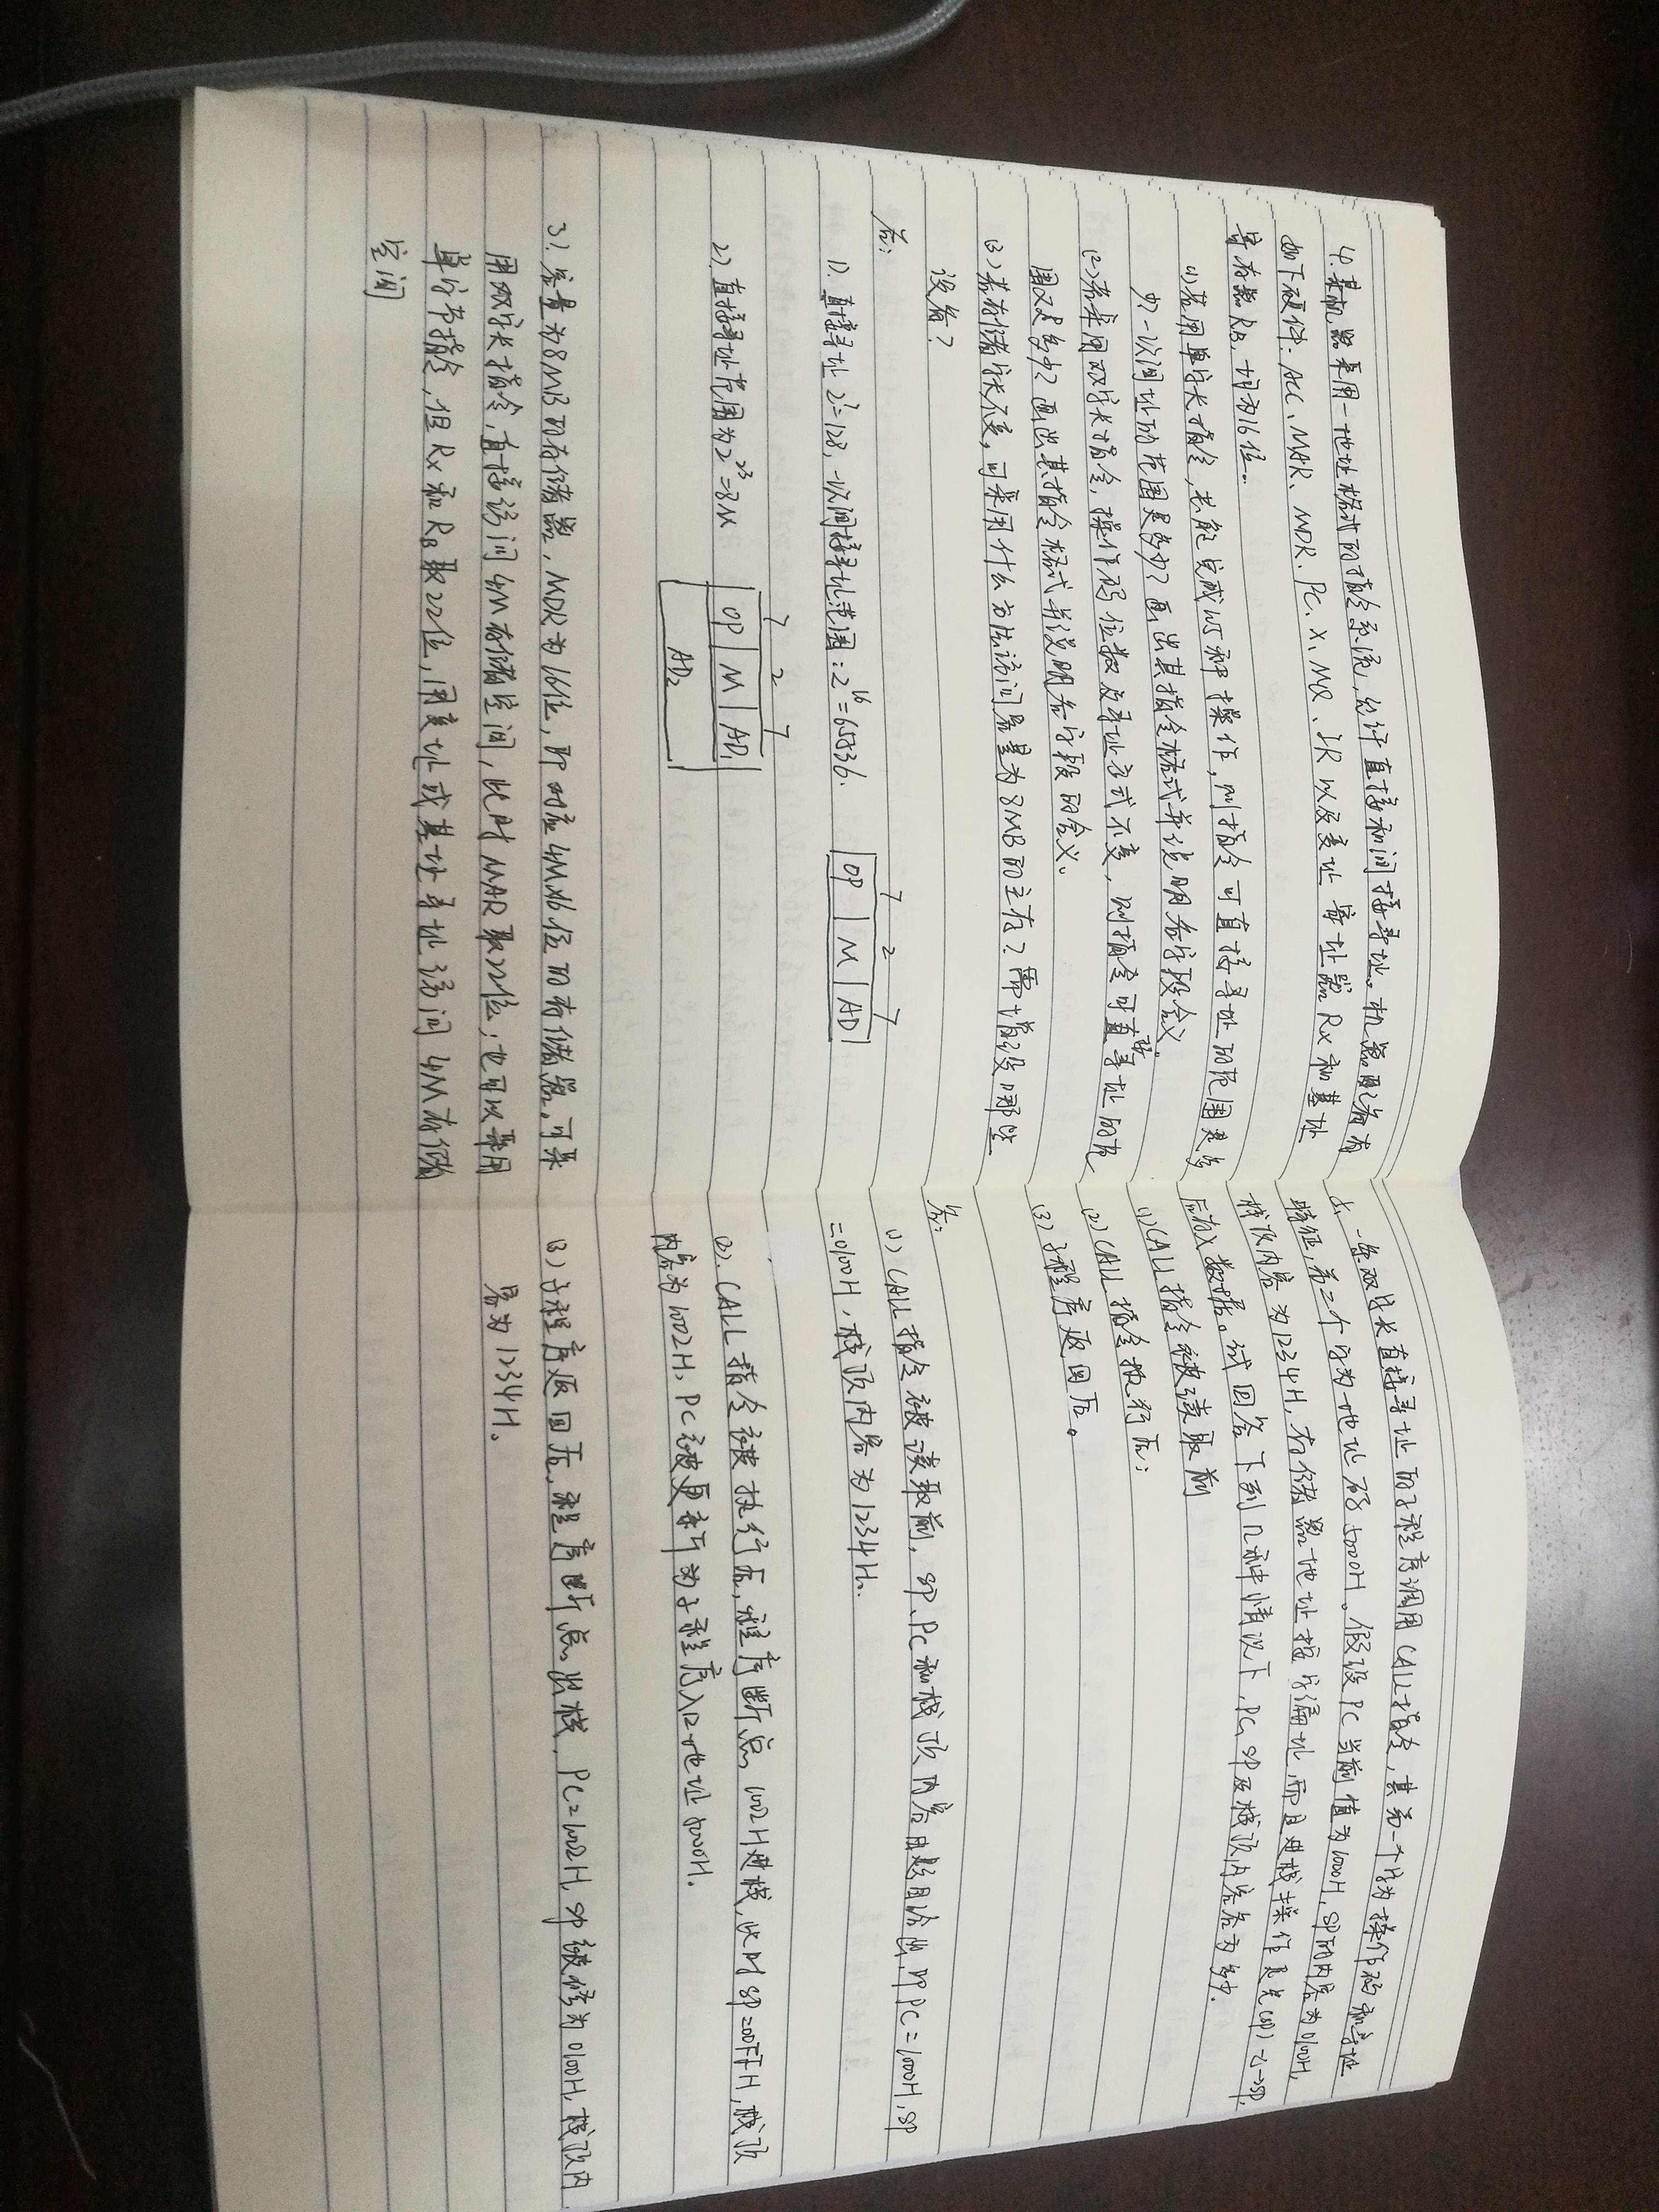 4.某机器采用一地址格式的指令系统,允许直接和间接寻址。机器配备有
如下硬件:ACC、MAR、MDR、PC、X、MQ、IR以及变址寄址器Rx和基址
寄存器RB,均为16位.
(1)若用单字长指令,共能完成105种操作,则指令可直接寻址的范围是多
少?一次间址的范围是多少?画出其指令格式并说明各字段含义.
(2)若采用双字长指令,操作码位数及寻址方式不变,则指令可直接寻址的范
围又是多少?画出其指令格式并说明各字段的含义。
(3)若存储字长不变,可采用什么方法访问容量为8MB的主存?需增设哪些
设备?
答:
1). 直接寻址2⁷=128, 一次间接寻址范围:2¹⁶=65536.
7 2 7
OP M AD
2).直接寻址范围为2²³=8M
7 2 7
OP M AD₁
AD₂
3).容量为8MB的存储器,MDR为16位,即对应4M×16位的存储器。可采
用双字长指令,直接访问4M存储空间,此时MAR取22位;也可以采用
单字节指令,但Rx和RB取22位,用变址或基址寻址访问4M存储
空间
5.一条双字长直接寻址的子程序调用CALL指令,其第一个字为操作码和寻址
特征,第二个字为地址码5000H。假设PC当前值为1000H,SP的内容为0100H,
栈顶内容为1234H,存储器地址按字编址,而且进栈操作是先(SP)-1→SP,
后存入数据。试回答下列几种情况下,PC、SP及栈顶内容各为多少.
(1)CALL指令被读取前
(2)CALL指令执行后;
(3)子程序返回后。
答:
(1) CALL指令被读取前,SP、PC和栈顶内容由题目给出,即PC=1000H,SP
=0100H,栈顶内容为1234H.
(2).CALL指令被执行后,程序断点1002H进栈,此时SP=00FFH,栈顶
内容为1002H,PC被更新为子程序入口地址5000H.
(3)子程序返回后,程序断点出栈,PC=1002H,SP被修为0100H,栈顶内
容为1234H。